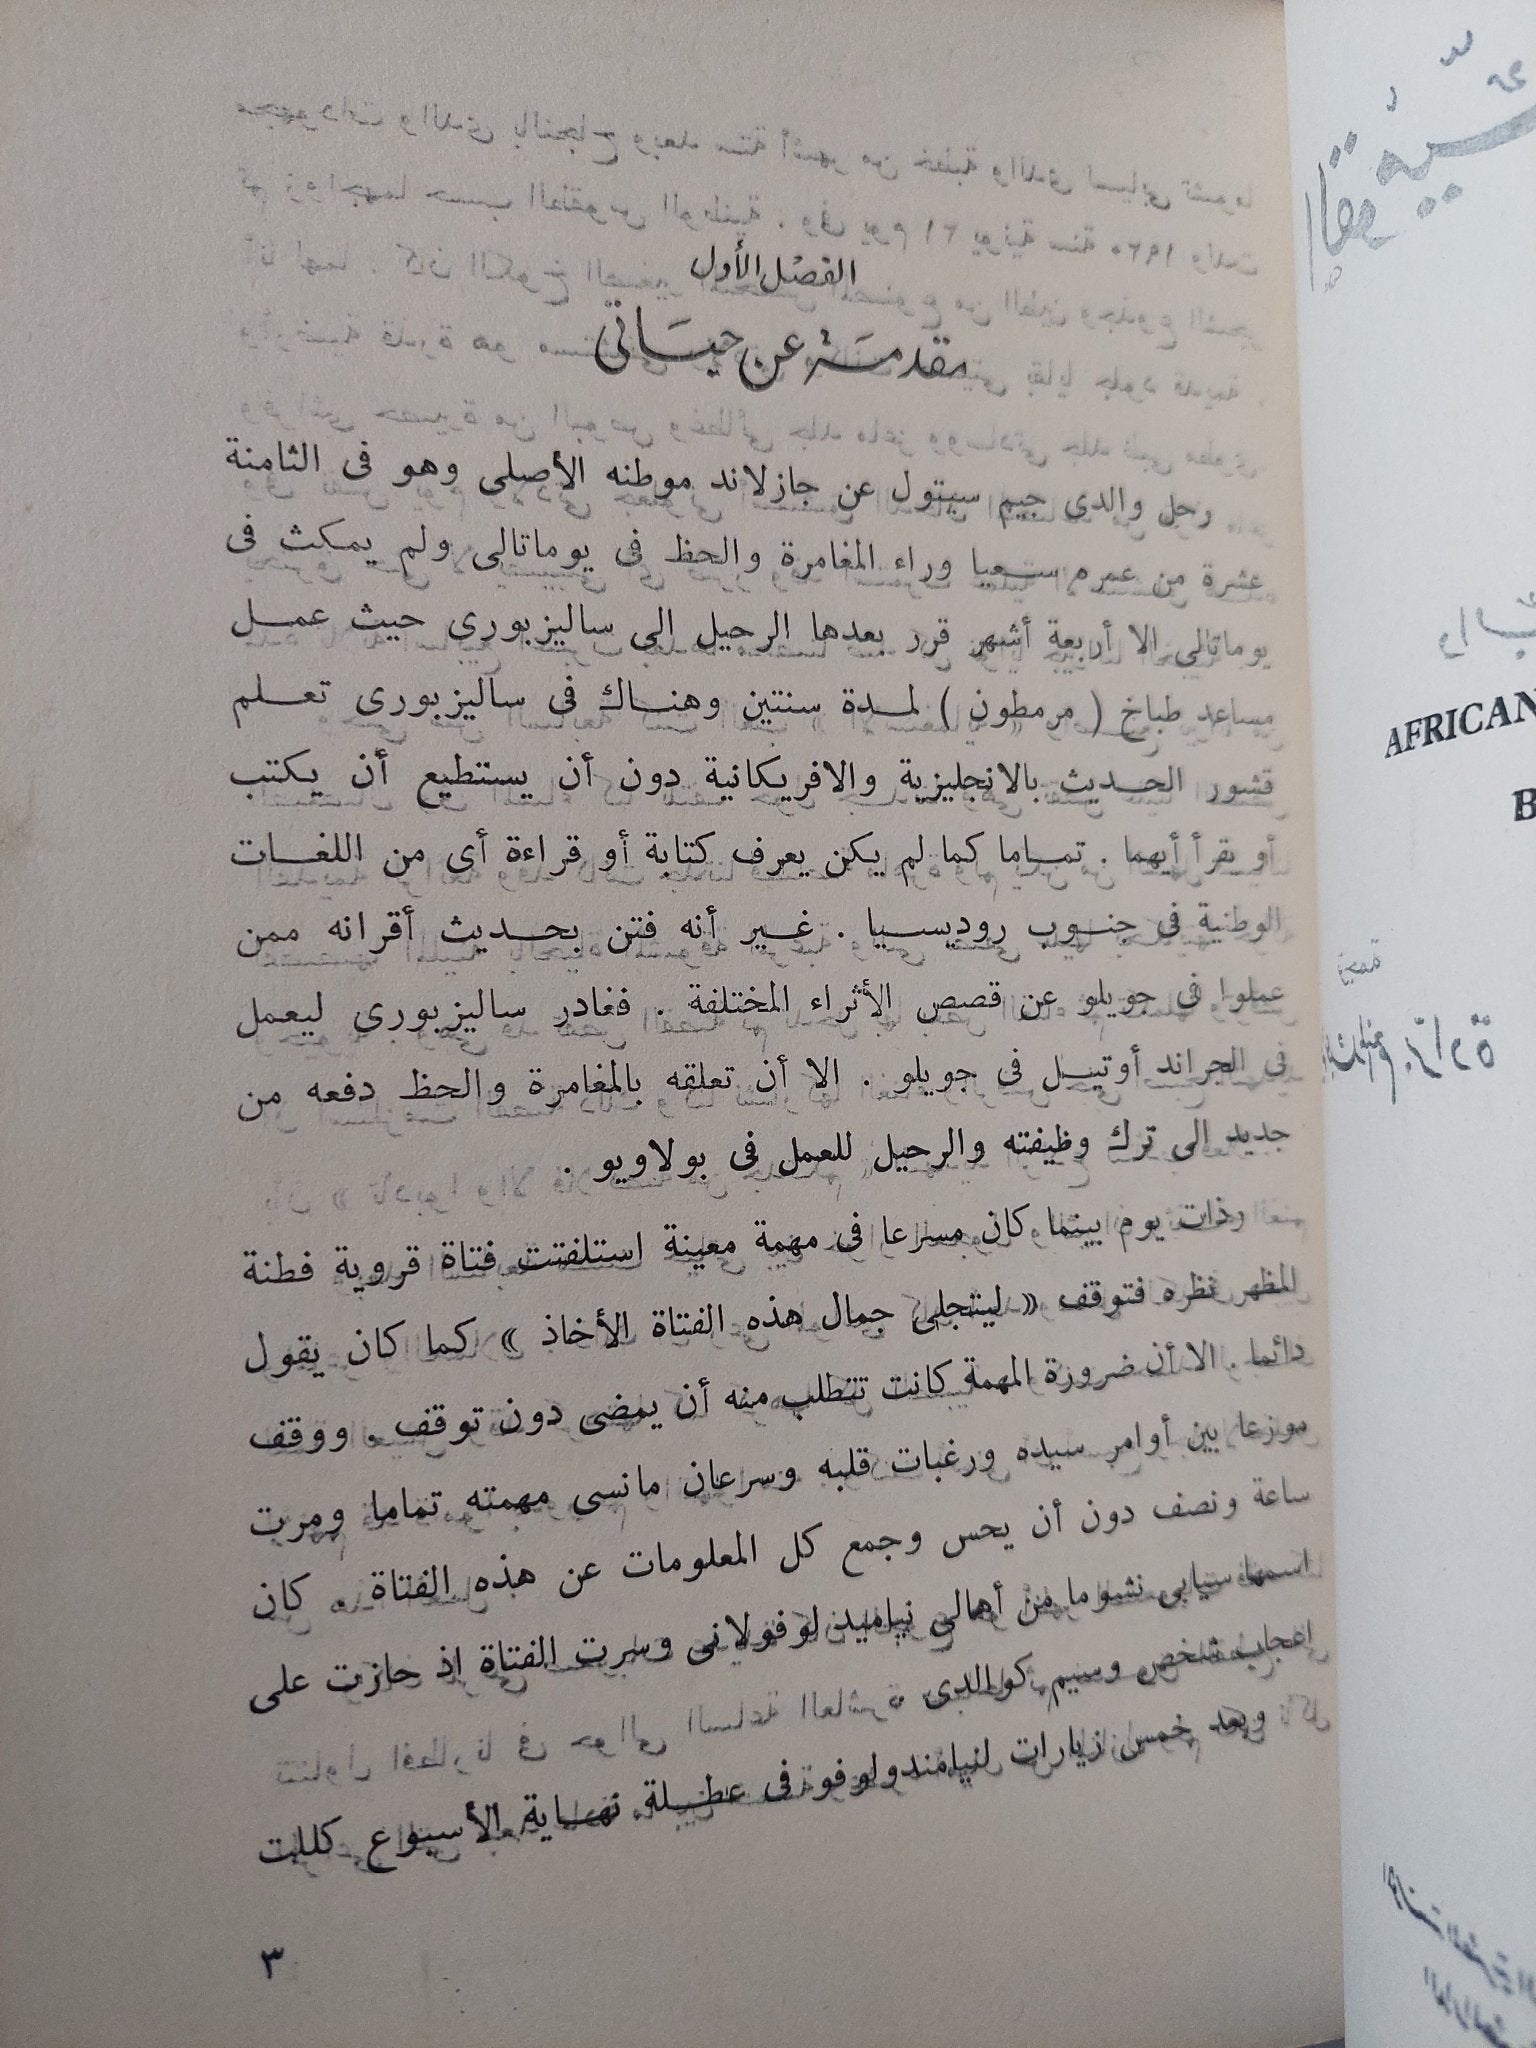 الفصل الأول
مقدمة عن حياتى
رحل والدى جيم سيتول عن جازلاند موطنه الأصلى وهو فى الثامنة
عشرة من عمره سعيا وراء المغامرة والحظ فى يوماتالى ولم يمكث فى
يوماتالى الا أربعة أشهر قرر بعدها الرحيل الى ساليزبورى حيث عمل
مساعد طباخ ( مرمطون ) لمدة سنتين وهناك فى ساليزبورى تعلم
قشور الحديث بالانجليزية والافريكانية دون أن يستطيع أن يكتب
أو يقرأ أيهما . تماما كما لم يكن يعرف كتابة أو قراءة أى من اللغات
الوطنية فى جنوب روديسيا . غير أنه فتن بحديث أقرانه ممن
عملوا فى جويلو عن قصص الأثراء المختلفة . فغادر ساليزبورى ليعمل
فى الجراند أوتيل فى جويلو . الا أن تعلقه بالمغامرة والحظ دفعه من
جديد الى ترك وظيفته والرحيل للعمل فى بولاويو .
وذات يوم بينما كان مسرعا فى مهمة معينة استلفتت فتاة قروية فطنة
المظهر نظره فتوقف « ليتجلى جمال هذه الفتاة الأخاذ » كما كان يقول
دائما . الا أن ضرورة المهمة كانت تتطلب منه أن يمضى دون توقف . ووقف
موزعا بين أوامر سيده ورغبات قلبه وسرعان مانسى مهمته تماما ومرت
ساعة ونصف دون أن يحس وجمع كل المعلومات عن هذه الفتاة كان
اسمها سيابى نشوما من أهالى نياميد لوفولانى وسرت الفتاة اذ حازت على
اعجاب شخص وسيم كوالدى
وبعد خمس زيارات لنيامندولوفو فى عطلة نهاية الأسبوع كللت
٣
AFRICAN
B
ترجمة